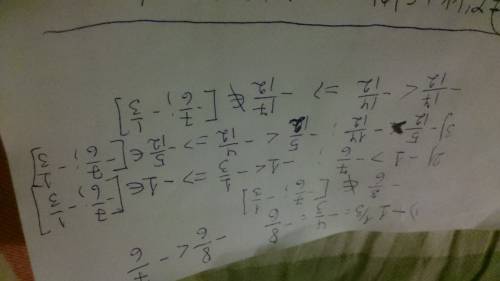 1) -1 1/3 = -4/3 = -8/6 -8/6 < -7/6
-8/6 ∉ [-7/6; -1/3]
2) -1 > -7/6; -1 < -1/3 => -1 ∈ [-7/6; -1/3]
3) -5/12 > -14/12; -5/12 < -4/12 => -5/12 ∈ [-7/6; -1/3]
-17/12 < -14/12 => -17/12 ∉ [-7/6; -1/3]